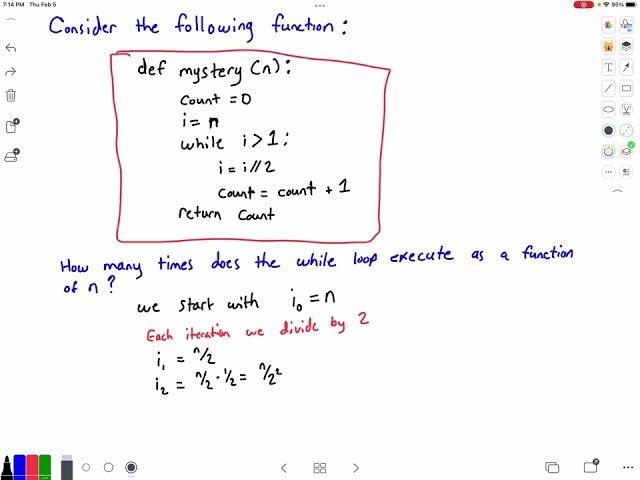 7:14 PM Thu Feb 5
95%
Consider the following function:
def mystery (n):
count = 0
i = n
while i > 1:
i = i // 2
count = count + 1
return count
How many times does the while loop execute as a function
of n?
we start with i₀ = n
Each iteration we divide by 2
i₁ = n/2
i₂ = n/2 · 1/2 = n/2²